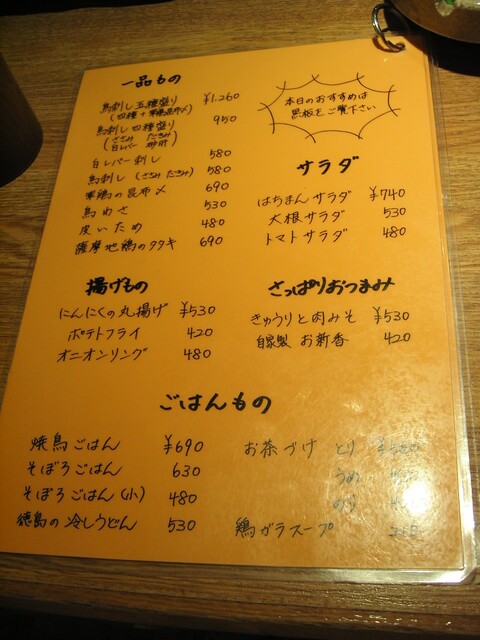 一品もの
鳥刺し五種盛り ¥1.260
鳥刺し四種盛り 950
(ささみ たたき
白レバー 砂肝)
白レバー刺し 580
鳥刺し (ささみ たたき) 580
軍鶏の昆布〆 690
鳥わさ 530
皮いため 480
薩摩地鶏のタタキ 690
本日のおすすめは
黒板をご覧下さい
サラダ
はちまんサラダ ¥740
大根サラダ 530
トマトサラダ 480
揚げもの
にんにくの丸揚げ ¥530
ポテトフライ 420
オニオンリング 480
さっぱりおつまみ
きゅうりと肉みそ ¥530
自家製 お新香 420
ごはんもの
焼鳥ごはん ¥690
そぼろごはん 630
そぼろごはん (小) 480
徳島の冷しうどん 530
お茶づけ とり
うめ
のり
鶏ガラスープ